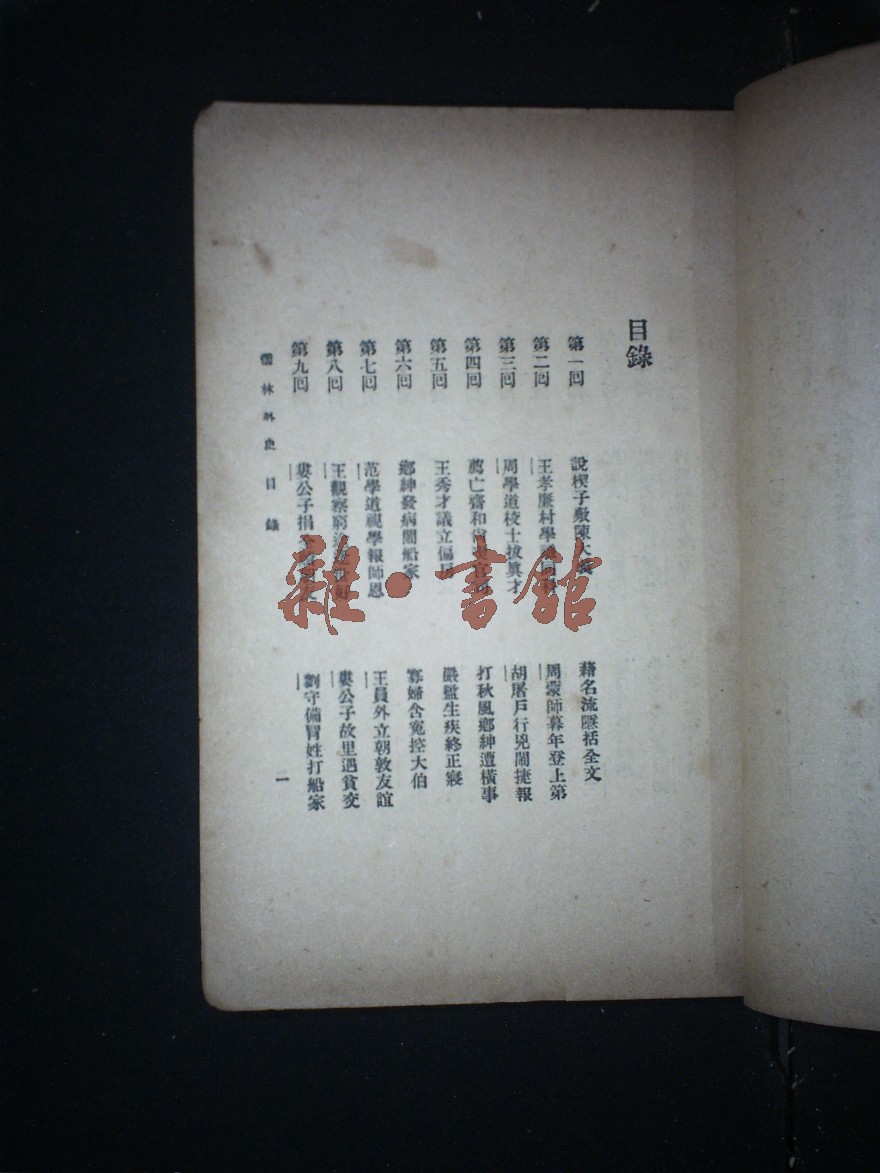 目錄
第一回 說楔子敷陳大 藉名流隱括全文
第二回 王孝廉村學 周蒙師暮年登上第
第三回 周學道校士拔真才 胡屠戶行兇鬧捷報
第四回 薦亡齋和 官 打秋風鄉紳遭橫事
第五回 王秀才議立偏 嚴監生疾終正寢
第六回 鄉紳發病鬧船家 寡婦含冤控大伯
第七回 范學道視學報師恩 王員外立朝敦友誼
第八回 王觀察窮 好 婁公子故里遇貧交
第九回 婁公子捐 友 劉守備冒姓打船家
儒林外史 目錄 一
雜·書館